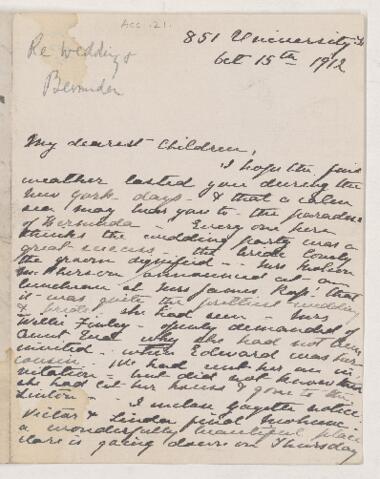 Acc. 21.
Re Weddings
Bermuda
851 University St
Oct 15th 1912
My dearest Children,
I hope the fine
weather lasted you during the
New York days - & that a calm
sea may bear you to the paradise
of Bermuda - Everyone here
thinks the wedding party was a
great success - the bride lovely
the groom dignified - Mrs
announced at a
luncheon at Mrs James Ross' that
it was quite the prettiest wedding
& bride she had seen - Mrs
Willie Finley - openly demanded of
Aunt why she had not been
invited - when Edward was her
cousin. We had sent her an in-
vitation - but did not know
she had let her house & gone to the
- I enclose Gazette notice
Victor & Linda find Mohonk -
a wonderfully beautiful place
Clare is going down on Thursday